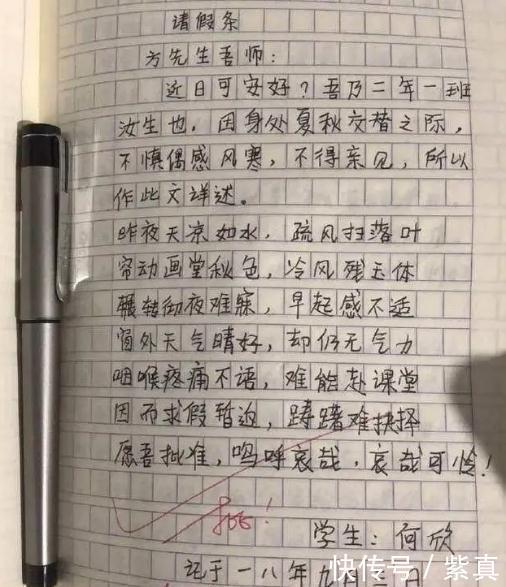 请假条
方先生吾师：
近日可安好？吾乃二年一班
汝生也，因身处夏秋交替之际，
不慎偶感风寒，不得亲见，所以
作此文详述。
昨夜天凉如水，疏风扫落叶
帘动画堂秋色，冷风残玉体
辗转彻夜难寐，早起感不适
窗外天气晴好，却仍无气力
咽喉疼痛不语，难能赴课堂
因而求假暂返，踌躇难抉择
愿吾批准，呜呼哀哉，哀哉可怜！
批！
学生：何欣
记于一八年九 日
快传号／紫真